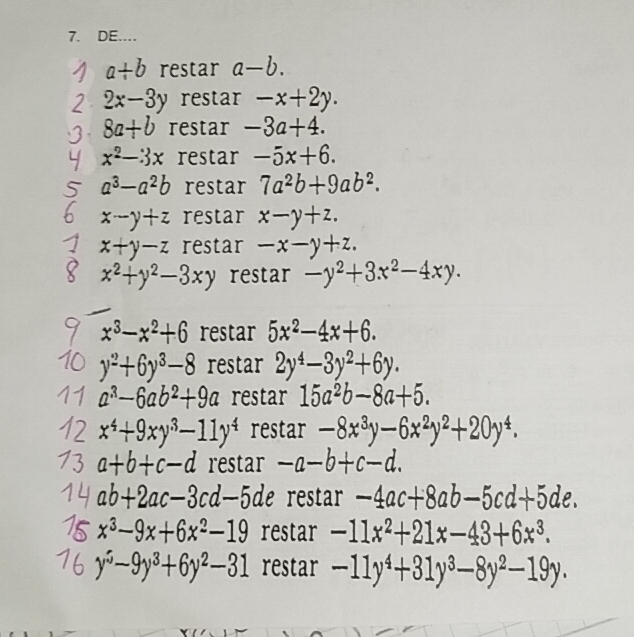 7. DE....
1 a+b restar a−b.
2. 2x−3y restar −x+2y.
3. 8a+b restar −3a+4.
4 x²−3x restar −5x+6.
5 a³−a²b restar 7a²b+9ab².
6 x−y+z restar x−y+z.
7 x+y−z restar −x−y+z.
8 x²+y²−3xy restar −y²+3x²−4xy.
9 x³−x²+6 restar 5x²−4x+6.
10 y²+6y³−8 restar 2y⁴−3y²+6y.
11 a³−6ab²+9a restar 15a²b−8a+5.
12 x⁴+9xy³−11y⁴ restar −8x³y−6x²y²+20y⁴.
13 a+b+c−d restar −a−b+c−d.
14 ab+2ac−3cd−5de restar −4ac+8ab−5cd+5de.
15 x³−9x+6x²−19 restar −11x²+21x−43+6x³.
16 y⁵−9y³+6y²−31 restar −11y⁴+31y³−8y²−19y.